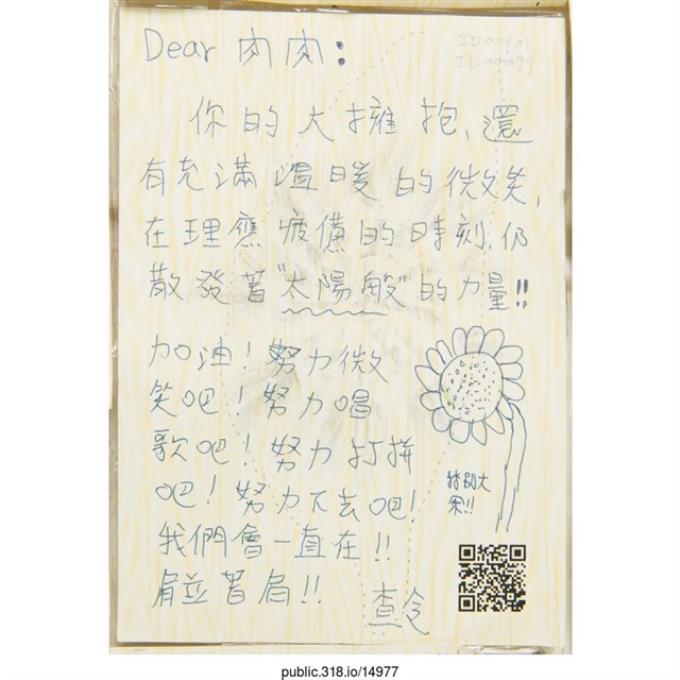 Dear 肉肉：
ID00401
ID00097
你的大擁抱、還
有充滿溫暖的微笑，
在理應疲憊的時刻，仍
散發著"太陽般"的力量!!
加油！努力微
笑吧！努力唱
歌吧！努力打拼
吧！努力下去吧！
我們會一直在!!
肩並著肩!!
特別大
朵!!
查令
public.318.io/14977